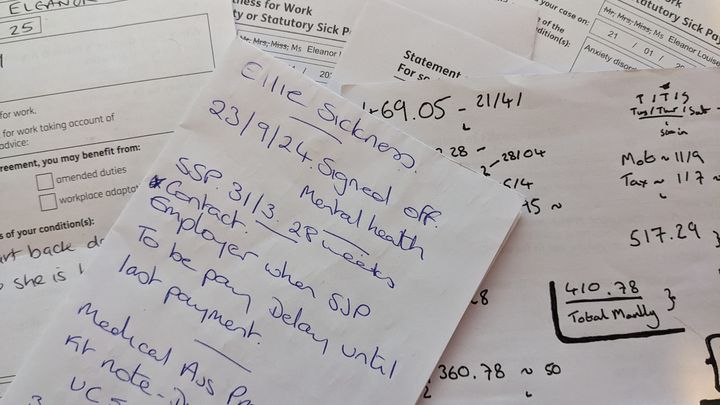 ELEANOR
25
for work.
for work taking account of
advice:
reement, you may benefit from:
amended duties
workplace adapta
s of your condition(s):
she is
ness for Work
ty or Statutory Sick P
Mr, Mrs, Miss, Ms Eleanor
Statement
For so
your case on:
of the
dition(s):
tatutory Sick Pay
Mr, Mrs, Miss, Ms Eleanor Louise
21 / 01 / 20
Anxiety disor
Ellie Sickness.
23/9/24. Signed off.
Mental health
SSP. 31/3. 28 weeks
*Contact.
Employer when SSP
To be pay Delay until
last payment.
Medical Ass
Fit note -
UC
69.05 - 21/4
28 -
28/04
5/4
15 ~
T I T I S
Tues / Thur / Sat
Mob ~ 11/9
Tax ~ 117 ~
517.29 }
410.78 }
Total Monthly
.8
360.78 ~ 50